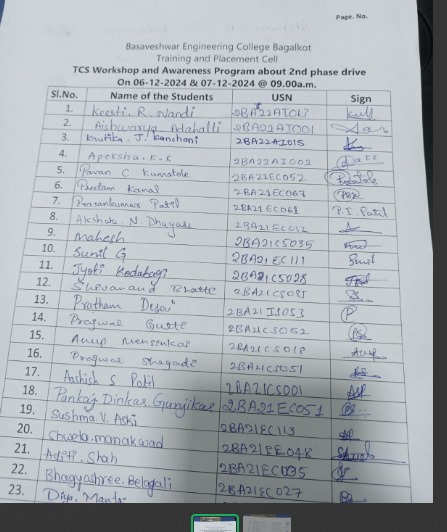 Page. No.
Basaveshwar Engineering College Bagalkot
Training and Placement Cell
TCS Workshop and Awareness Program about 2nd phase drive
On 06-12-2024 & 07-12-2024 @ 09.00a.m.
Sl.No. Name of the Students USN Sign
1. Keerti. R. Nandi
2. Aishwarya Adahalli 2BA22AI001
3. Krutika. J. Kanchani 2BA22AI015
4. Apeksha. K. K 2BA22AI002
5. Pavan C Kumatole 2BA21EC052
6. Preetam Kamal 2BA21EC067
7. Prasannkumar Patil 2BA21EC061 P.I. Patil
8. Akshata. N. Dhuyade 2BA21EC012
9. Mahesh 2BA21CS035
10. Sunil G 2BA21EC111 Sunil
11. Jyoti Kodabagi 2BA21CS028
12. Shevanand 2BA21CS085
13. Pratham Desai 2BA21IS053 P
14. Prajwal Gutte 2BA21CS052
15. Anup 2BA21CS018 Anup
16. Prajwal 2BA21CS051
17. Ashish S Patil 2BA21CS001 ASP
18. Pankaj Dinkar Gunjikar 2BA21EC051
19. Sushma. V. Aski
20. Shweta. manakwad 2BA21EC113
21. Aditi. Shah 2BA21EE048
22. Bhagyashree. Belagali 2BA21EC035
23. 2BA21EC027